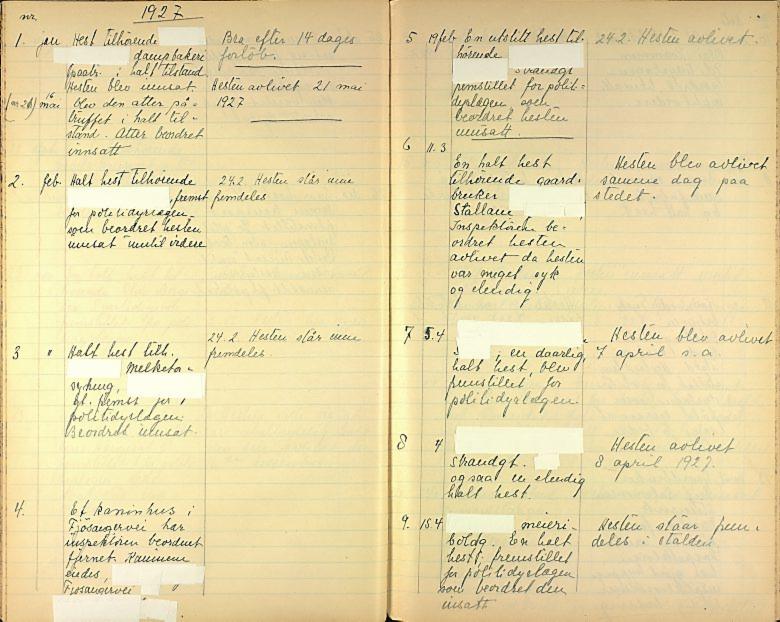 nr.
1927
1. jan Hest tilhørende
dampbakeri
paatr. i halt tilstand
Hesten blev innsat.
(nr. 26) 16 mai blev den atter på-
truffet i halt til-
stand. Atter beordret
innsatt
Bra efter 14 dages
forløb.
Hesten avlivet 21 mai
1927
2. feb. Halt hest tilhørende
fremst
for politidyrlægen
som beordret hesten
innsat inntil videre
24.2 Hesten står inne
fremdeles.
3 " Halt hest tilh.
Melkefo-
syning,
bl. fremst for
politidyrlægen.
Beordret innsat.
24.2. Hesten står inne
fremdeles.
4. Et kaninhus i
Fjøsangervei har
inspektøren beordret
fjernet. Kaninene
eiedes,
Fjøsangervei
5 19 feb En utslitt hest til-
hørende
Strandgt
fremstillet for polit-
dyrlægen som
beordret hesten
innsatt.
24.2. Hesten avlivet.
6 11.3
En halt hest
tilhørende gaard-
bruker
Stallane
Inspektøren be-
ordret hesten
avlivet da hesten
var meget syk
og elendig
Hesten blev avlivet
samme dag paa
stedet.
7 5.4
i en daarlig,
halt hest, blev
fremstillet for
politidyrlægen.
Hesten blev avlivet
7 april s.a
8 4
Strandgt.
ogsaa en elendig
halt hest.
Hesten avlivet
8 april 1927.
9. 15.4 meieri-
bolag. En halt
hest fremstillet
for politidyrlægen
som beordret den
insatt
Hesten staar frem-
deles i stalden